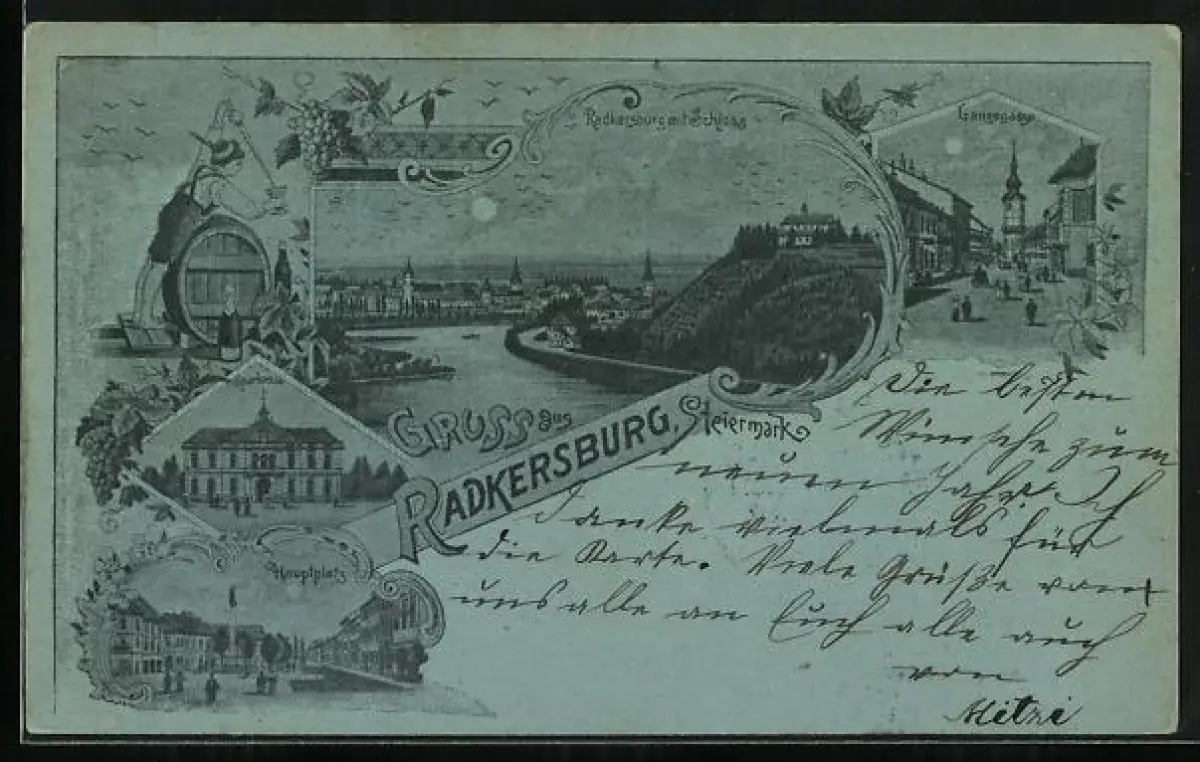 Radkersburg mit Schloss
Gruss aus
Radkersburg, Steiermark
Hauptplatz
Die besten
Wünsche zum
neuen Jahr. Ich
danke vielmals für
die Karte. Viele Grüße von
uns alle an Euch alle auch
von
Mitzi